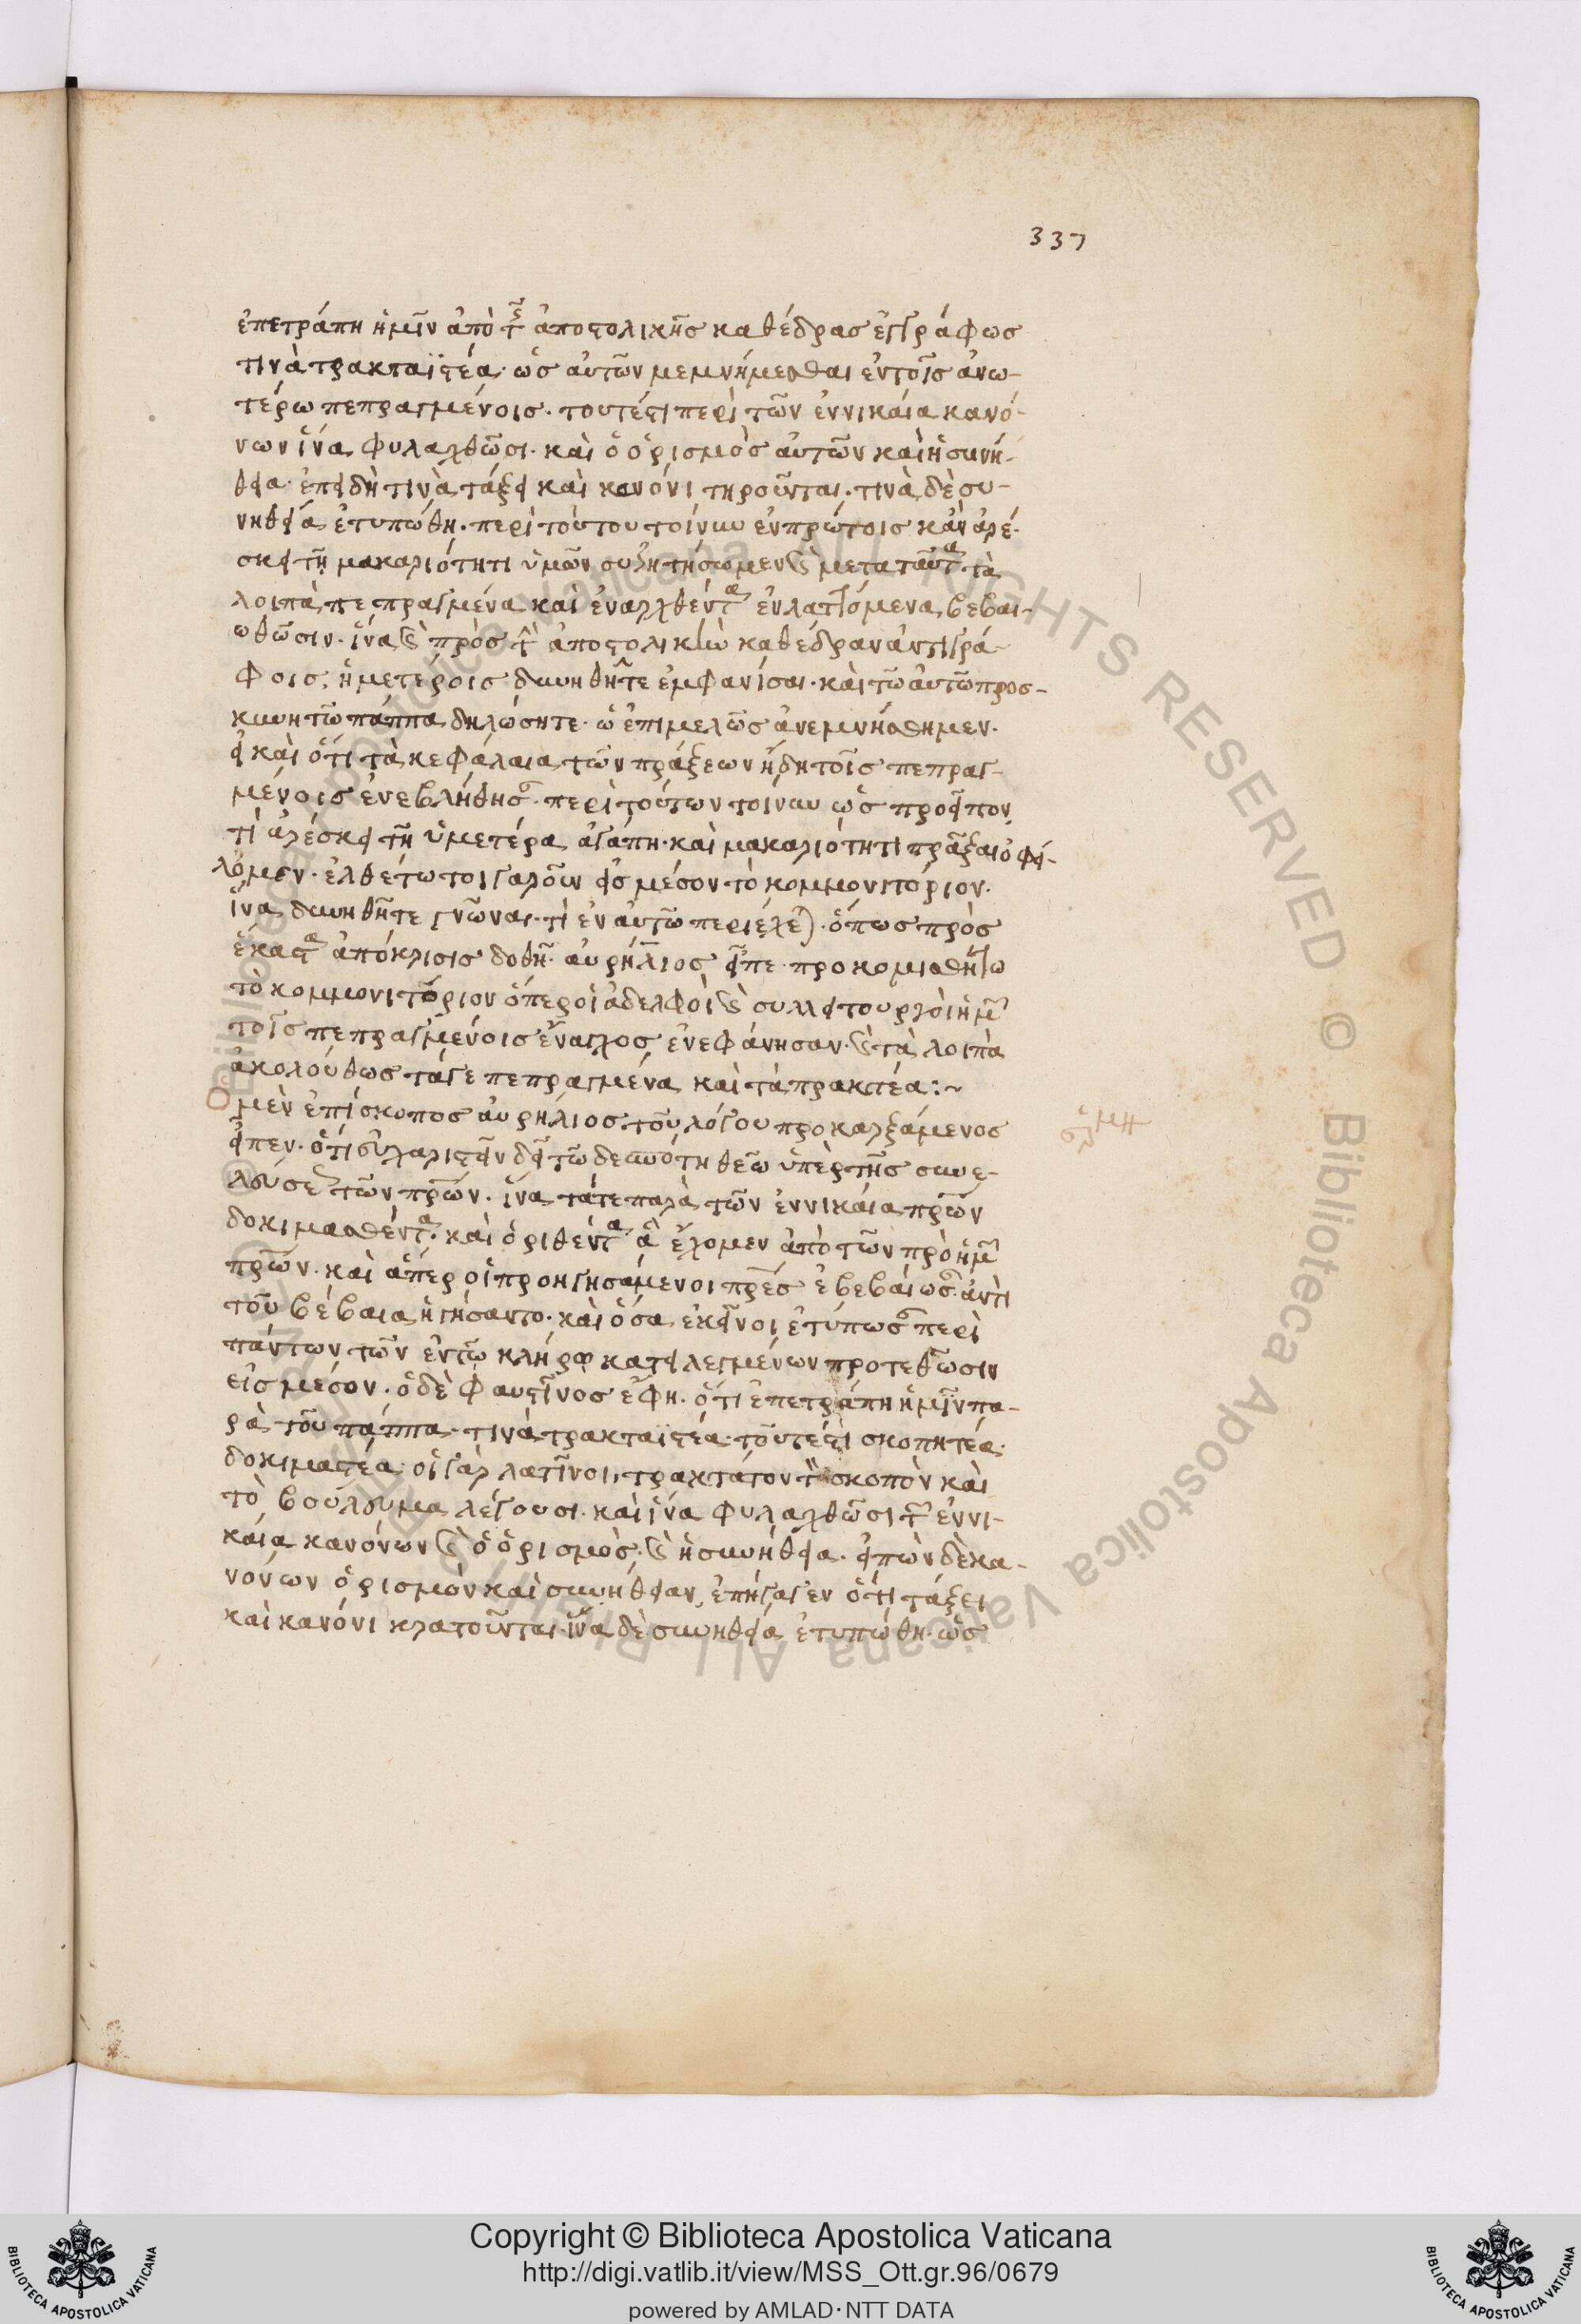 337
ἐπετράπη ἡμῖν ἀπὸ τῆς ἀποστολικῆς καθέδρας ἐγγράφως
τινὰ τρακταϊστέα· ὡς αὐτῶν μεμνήμεσθαι ἐν τοῖς ἀνω-
τέρω πεπραγμένοις· τουτέστι περὶ τῶν ἐν νικαία κανό-
νων ἵνα φυλαχθῶσι· καὶ ὁ ὁρισμὸς αὐτῶν καὶ ἡ συνή-
θεια· ἐπειδὴ τινὰ τάξει καὶ κανόνι τηροῦνται· τινὰ δὲ συ-
νηθεία ἐτυπώθη· περὶ τούτου τοίνυν ἐν πρώτοις κἂν ἀρέ-
σκει τῆ μακαριότητι ὑμῶν συζητήσωμεν καὶ μετὰ ταῦτα τὰ
λοιπὰ πεπραγμένα καὶ ἐναρχθέντα ἐνλαττόμενα βεβαι-
ωθῶσιν· ἵνα καὶ πρὸς τὴν ἀποστολικὴν καθέδραν ἀντιγρά-
φοις ἡμετέροις δυνηθῆτε ἐμφανίσαι· καὶ τῶ αὐτῶ προσ-
κυνητῶ πάππα δηλώσητε· ὡ ἐπιμελῶς ἀνεμνήσθημεν·
εἰ καὶ ὅτι τὰ κεφάλαια τῶν πράξεων ἤδη τοῖς πεπραγ-
μένοις ἐνεβλήθησαν· περὶ τούτων τοίνυν ὡς προεῖπον
τί ἀρέσκει τῆ ὑμετέρα ἀγάπη· καὶ μακαριότητι πρᾶξαι ὀφεί-
λομεν· ἐλθέτω τοιγαροῦν εἰς μέσον τὸ κομμονιτόριον·
ἵνα δυνηθῆτε γνῶναι· τὶ ἐν αὐτῶ περιέχεται· ὅπως πρὸς
ἕκαστα ἀπόκρισις δοθῆ· αὐρήλιος εἶπε προκομισθήτω
τὸ κομμονιτόριον ὅπερ οἱ ἀδελφοὶ καὶ συλλειτουργοὶ ἡμῶν
τοῖς πεπραγμένοις ἔναγχος ἐνεφάνησαν· καὶ τὰ λοιπὰ
ἀκολούθως τάγε πεπραγμένα καὶ τὰ πρακτέα:~
Ὁ μὲν ἐπίσκοπος αὐρήλιος τοῦ λόγου προκαρξάμενος
εἶπεν· ὅτι εὐχαριστεῖν δεῖ τῶ δεσπότη θεῶ ὑπὲρ τῆς συνε-
λεύσεως τῶν πρων· ἵνα τάτε παρὰ τῶν ἐν νικαία πρων
δοκιμασθέντα· καὶ ὁριθέντα ἃ ἔχομεν ἀπὸ τῶν πρὸ ἡμῶν
πρων· καὶ ἅπερ οἱ προηγησάμενοι πρες ἐβεβαίωσαν· ἀντὶ
τοῦ βέβαια ἡγήσαντο· καὶ ὅσα ἐκεῖνοι ἐτύπωσαν περὶ
πάντων τῶν ἐν τῶ κλήρω κατειλεγμένων προτεθῶσιν
εἰς μέσον· ὁ δὲ φαυστῖνος ἔφη· ὅτι ἐπετράπη ἡμῖν πα-
ρὰ τοῦ πάππα· τινὰ τρακταϊστέα· τουτέστι σκοπητέα·
δοκιμαστέα· οἱ γὰρ λατῖνοι, τρακτάτον τὸν σκοπὸν καὶ
τὸ βούλευμα λέγουσι· καὶ ἵνα φυλαχθῶσι τῶν ἐν νι-
καία κανόνων καὶ ὁ ὁρισμὸς· καὶ ἡ συνήθεια· εἰπὼν δὲ κα-
νόνων ὁρισμὸν καὶ συνήθειαν, ἐπήγαγεν ὅτι τάξει
καὶ κανόνι κρατοῦνται· ἵνα δὲ συνηθεία ἐτυπώθη· ὡς
Copyright © Biblioteca Apostolica Vaticana
http://digi.vatlib.it/view/MSS_Ott.gr.96/0679
powered by AMLAD·NTT DATA